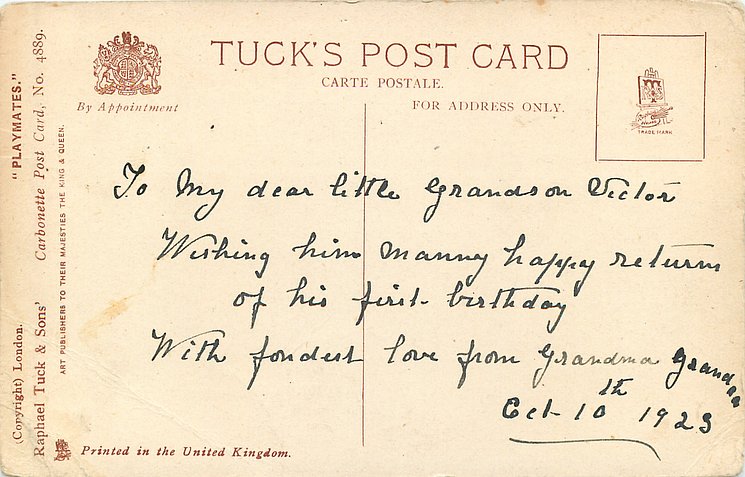 TUCK'S POST CARD
CARTE POSTALE.
By Appointment
FOR ADDRESS ONLY.
TRADE MARK
To My dear little Grandson Victor
Wishing him Manny happy returns
of his first birthday
With fondest love from Grandma Grandpa
Oct 10th 1923
Printed in the United Kingdom.
(Copyright) London.
"PLAYMATES."
Raphael Tuck & Sons' Carbonette Post Card, No. 4889.
ART PUBLISHERS TO THEIR MAJESTIES THE KING & QUEEN.